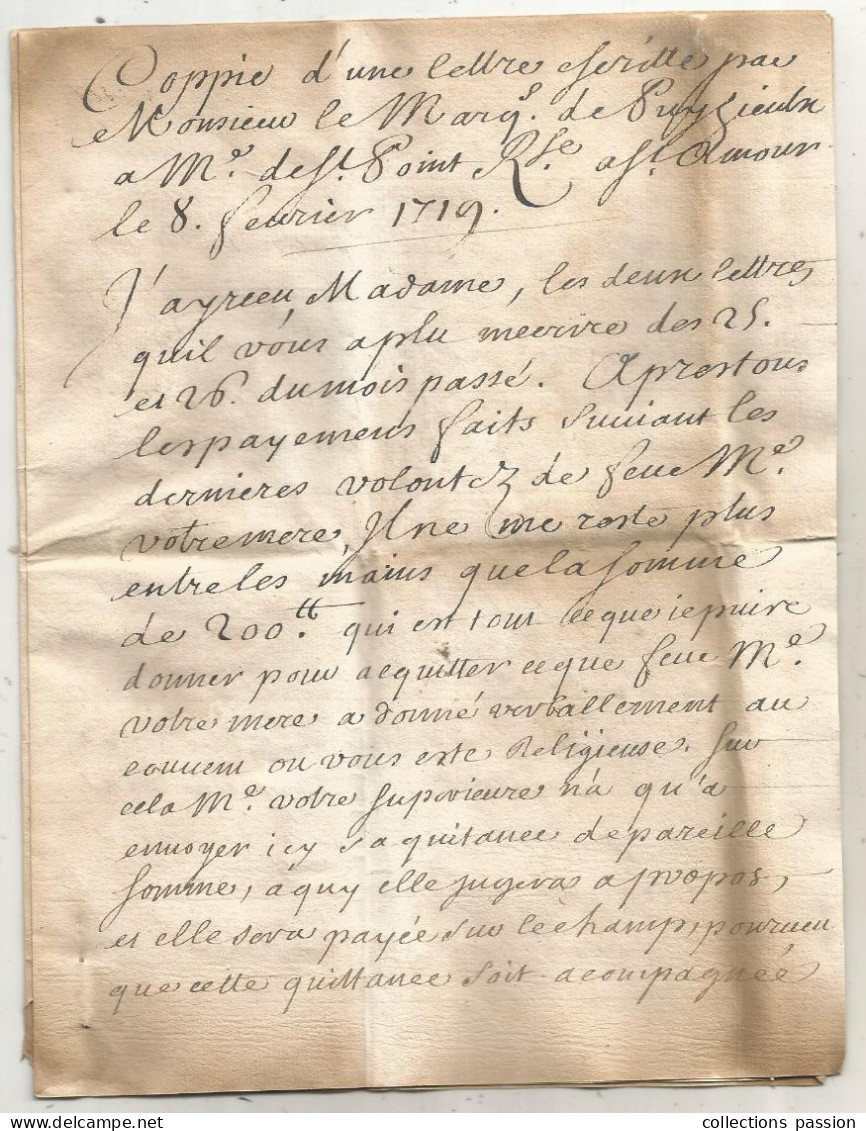 Coppie d'une lettre escritte par
Monsieur le Marq.s de Puyzieulx
a M.e de S.t Point R.se a S.t Amour
le 8. fevrier 1719.
J'ay receu, Madame, les deux lettres
quil vous a plu mecrire des 25.
et 26. du mois passé. Apres tous
les payemens faits suivant les
dernieres volontez de feue M.e
votre mere, Il ne me reste plus
entre les mains que la somme
de 200.tt qui est tout ce que je puire
donner pour acquitter ce que feue M.e
votre mere a donné verballement au
couvent ou vous este Religieuse. Sur
cela M.e votre superieure n'a qu'a
envoyer icy sa quitance de pareille
somme, a quy elle jugera a propos,
et elle sera payée sur le champ, pourveu
que cette quittance soit acompagnée
collections passion